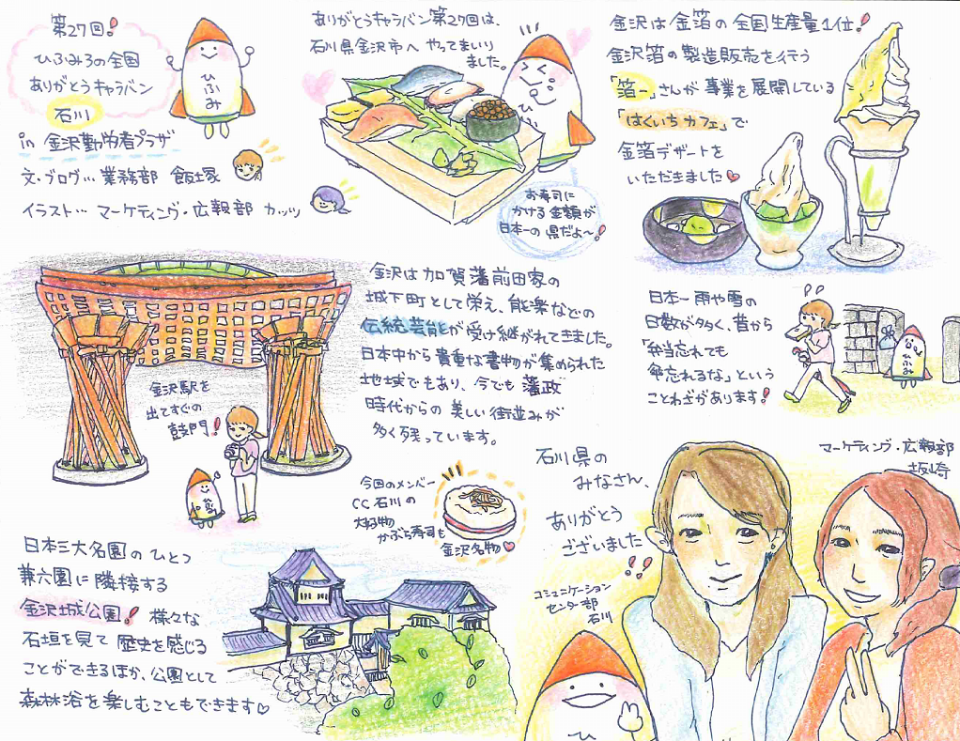 第27回!
ひふみろの全国
ありがとうキャラバン
石川
in 金沢勤労者プラザ
文・ブログ… 業務部 飯塚
イラスト… マーケティング・広報部 カッツ
ひふみ
ありがとうキャラバン第27回は、
石川県金沢市へ やってまいり
ました。
お寿司に
かける金額が
日本一の県だよ〜!
金沢は金箔の全国生産量1位!
金沢箔の製造販売を行う
「箔一」さんが事業を展開している
「はくいちカフェ」で
金箔デザートを
いただきました♥
金沢駅を
出てすぐの
鼓門!
金沢は加賀藩前田家の
城下町として栄え、能楽などの
伝統芸能が受け継がれてきました。
日本中から貴重な書物が集められた
地域でもあり、今でも藩政
時代からの美しい街並みが
多く残っています。
日本一雨や雪の
日数が多く、昔から
「弁当忘れても
傘忘れるな」という
ことわざがあります!
ひふみ
今回のメンバー
CC石川の
大好物
かぶら寿司も
金沢名物♥
日本三大名園のひとつ
兼六園に隣接する
金沢城公園! 様々な
石垣を見て歴史を感じる
ことができるほか、公園として
森林浴を楽しむこともできます♡
石川県の
みなさん、
ありがとう
ございました!!
コミュニケーション
センター部
石川
マーケティング・広報部
坂崎